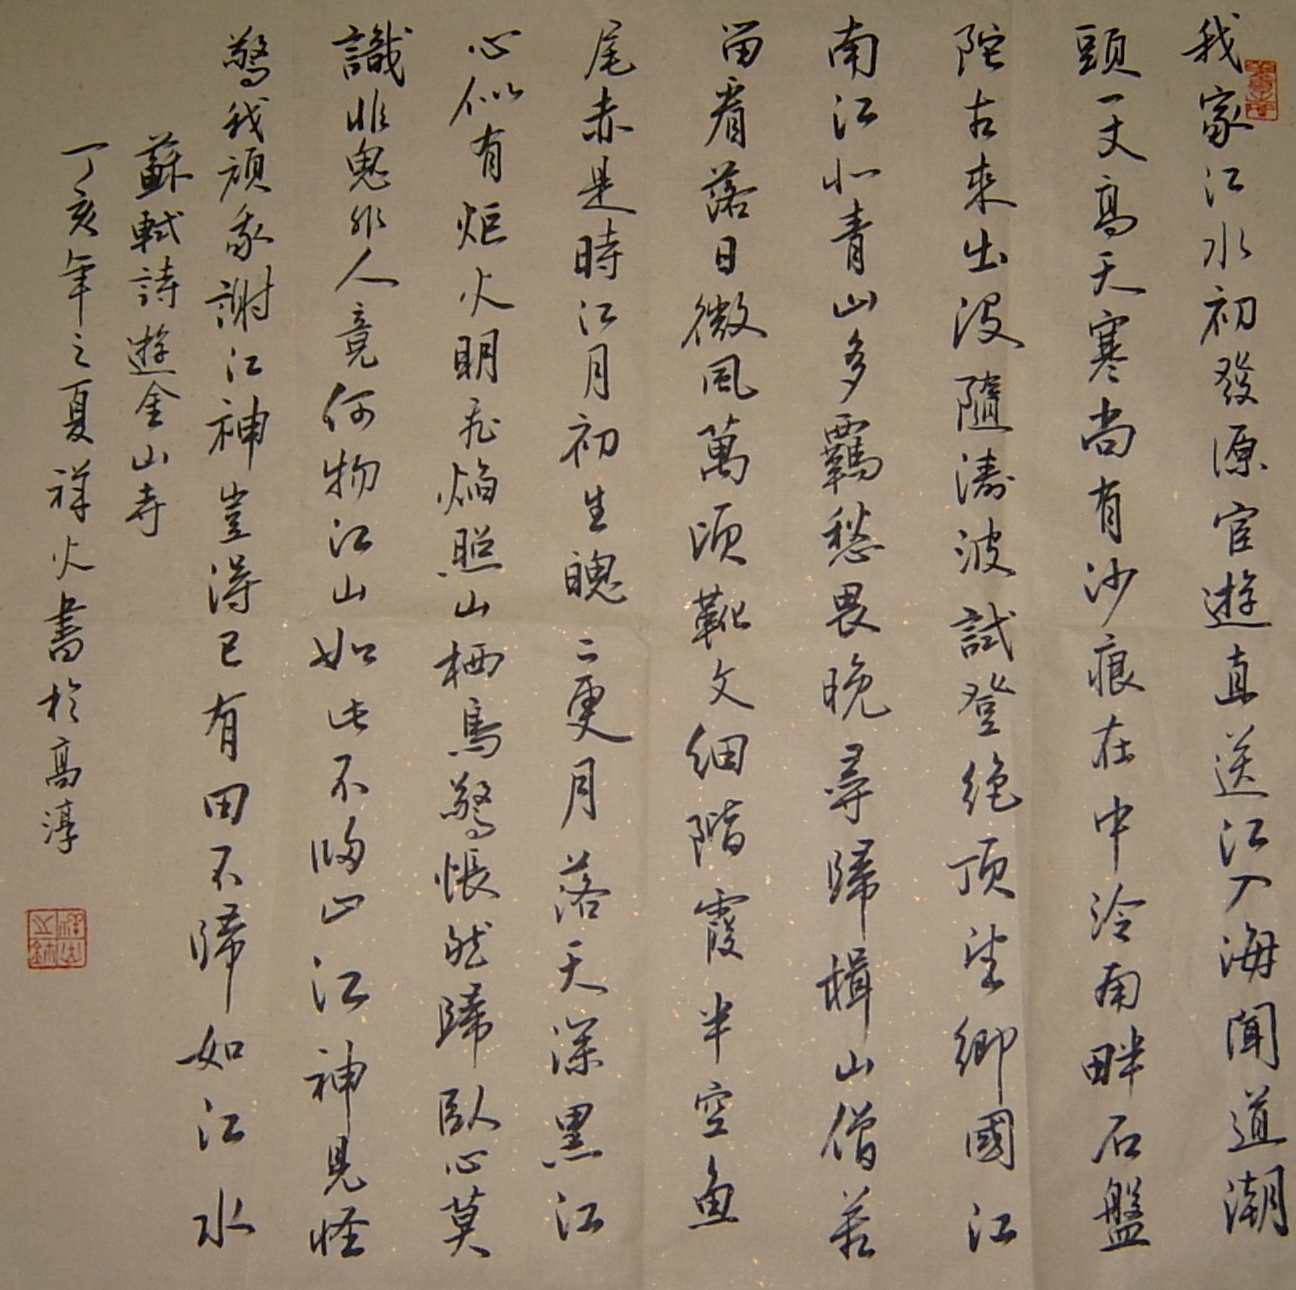 我家江水初發源宦遊直送江入海聞道潮
頭一丈高天寒尚有沙痕在中泠南畔石盤
陀古來出沒隨濤波試登絕頂望鄉國江
南江北青山多羈愁畏晚尋歸楫山僧苦
留看落日微風萬頃靴文細階霞半空魚
尾赤是時江月初生魄二更月落天深黑江
心似有炬火明飛焰照山栖鳥驚悵然歸臥心莫
識非鬼非人竟何物江山如此不歸山江神見怪
驚我頑我謝江神豈得已有田不歸如江水
蘇軾詩遊金山寺
丁亥年之夏祥火書於高淳